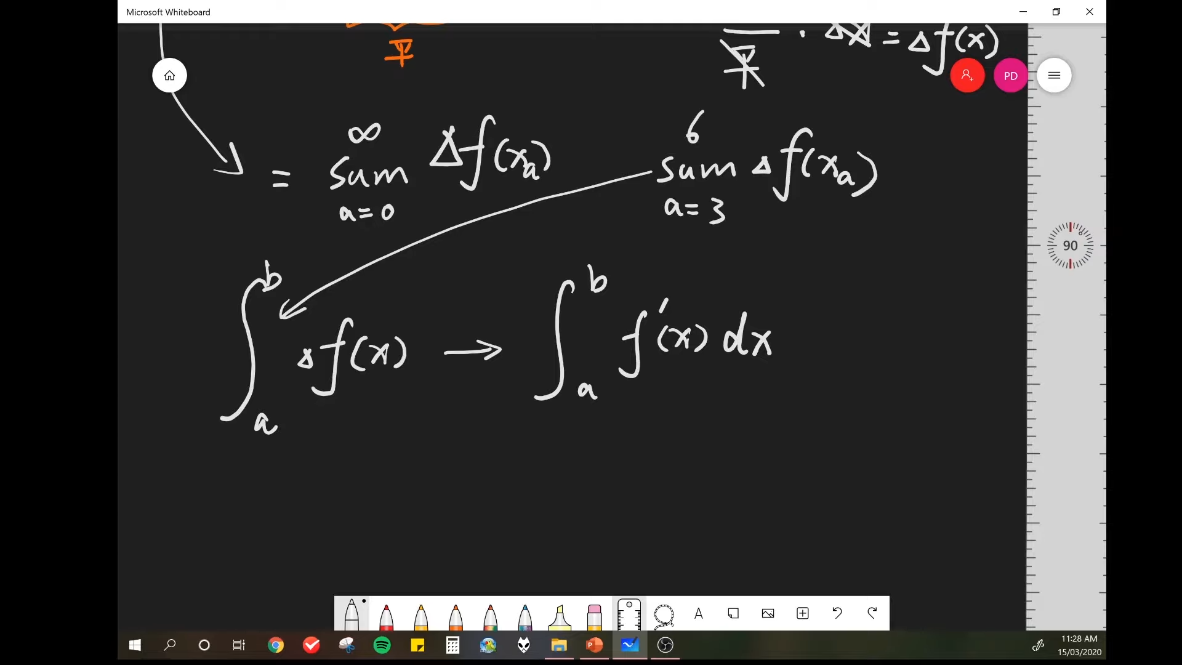 Microsoft Whiteboard
Ψ
Ψ · ΔX = Δf(x)
PD
∞
= sum Δf(xₐ)
a=0
6
sum Δf(xₐ)
a=3
90
∫ₐᵇ Δf(x) → ∫ₐᵇ f′(x) dx
A
11:28 AM
15/03/2020